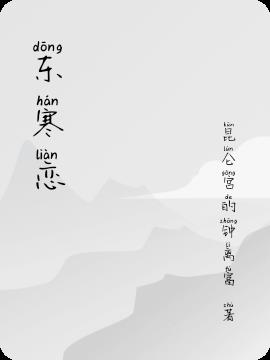 dōng
东
hán
寒
liàn
恋
kūn
昆
lún
仑
gōng
宫
de
的
zhōng
钟
lí
离
fù
富
zhù
著